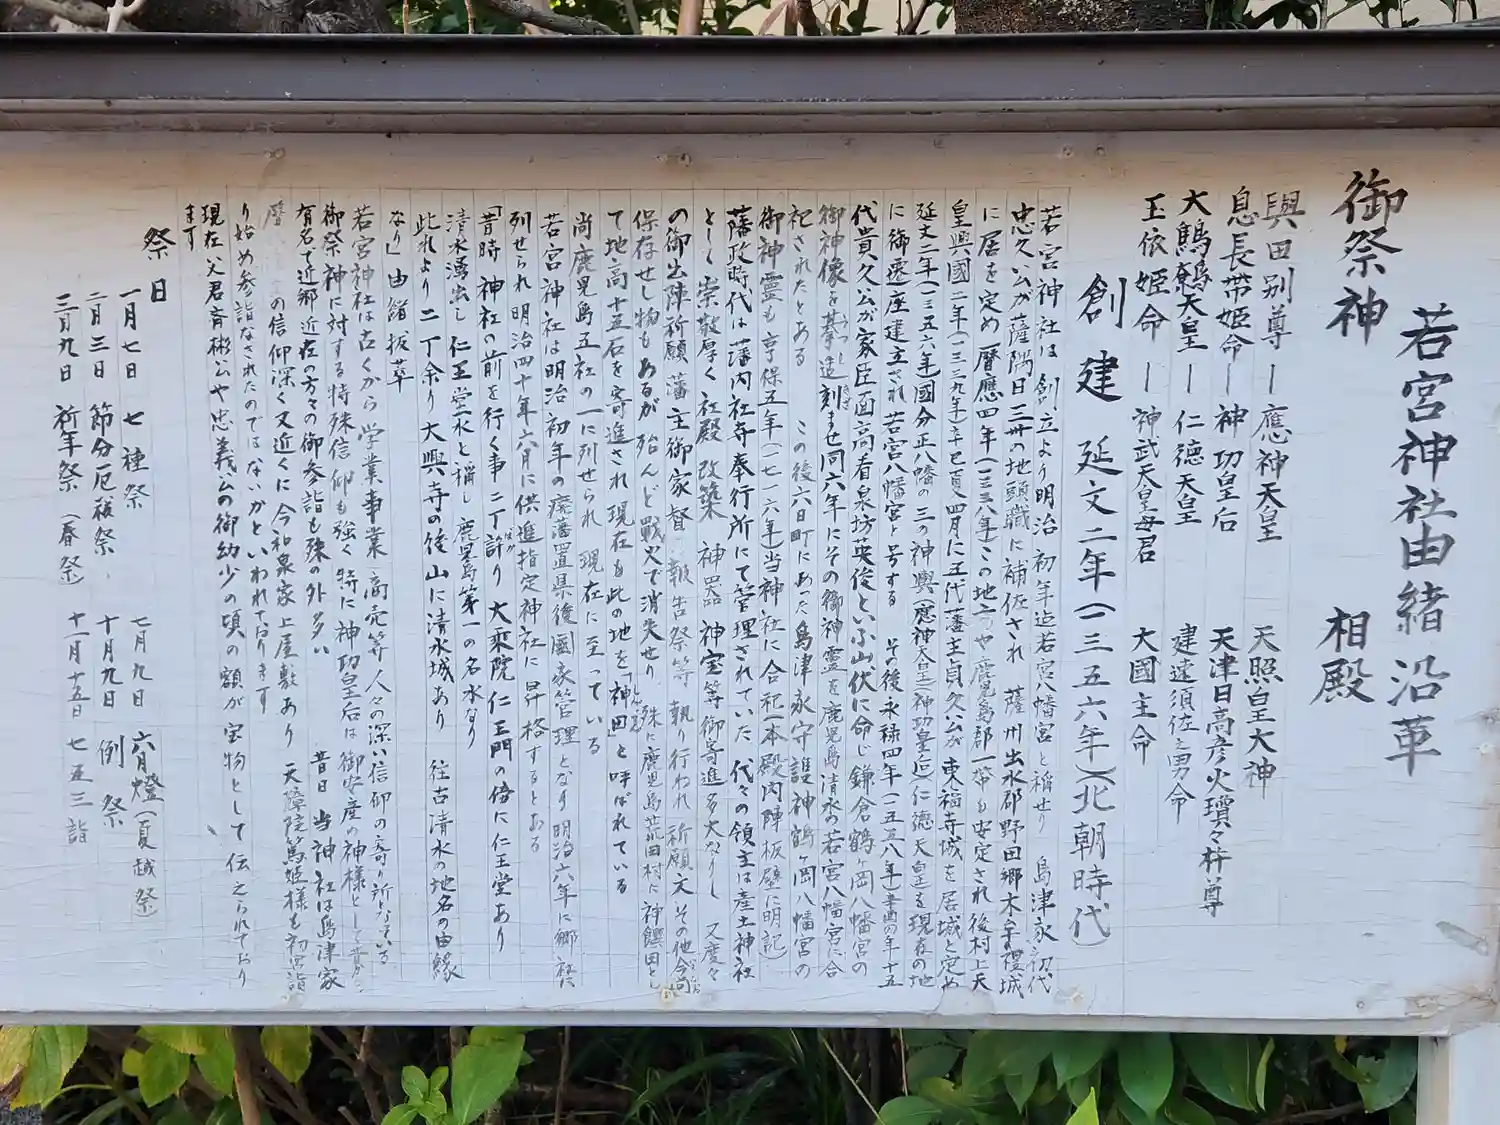 若宮神社由緒沿革
御祭神　相殿
興田別尊―應神天皇　天照皇大神
息長帯姫命―神功皇后　天津日高彦火瓊々杵尊
大鷦鷯天皇―仁徳天皇　建速須佐之男命
玉依姫命―神武天皇母君　大國主命
創建　延文二年(一三五六年)(北朝時代)
若宮神社は創立より明治初年迄若宮八幡宮と稱せり　島津家初代
忠久公が薩隅日三卅の地頭職に補佐され　薩州出水郡野田郷木牟禮城
に居を定め暦應四年(一三三八年)この地方や鹿児島郡一帯も安定され後村上天
皇興國二年(一三三九年)辛巳夏四月に五代藩主貞久公が東福寺城を居城と定め
延文二年(一三五六年)國分正八幡の三つの神輿(應神天皇)(神功皇后)(仁徳天皇)を現在の地
に御遷座建立され若宮八幡宮と号する　その後永禄四年(一五五八年)辛酉の年十五
代貴久公が家臣面高看泉坊英俊といふ山伏に命じ鎌倉鶴ヶ岡八幡宮の
御神像を摹造刻ませ同六年にその御神霊を鹿児島清水の若宮八幡宮に合
祀されたとある　この後六日町にあった島津永守護神鶴ヶ岡八幡宮の
御神霊も享保五年(一七一六年)当神社に合祀(本殿内陣板壁に明記)
藩政時代は藩内社寺奉行所にて管理されていた　代々の領主は産土神社
として崇敬厚く社殿改築　神器　神宝等御寄進多大なりし　又度々
の御出陣祈願　藩主御家督　報告祭等　執り行われ祈願文その他今尚
保存せし物もあるが殆んど戰火で消失せり　殊に鹿児島荒田村に神饌田とし
て地高十五石を寄進され現在も此の地を「神田」と呼ばれている
尚鹿児島五社の一に列せられ現在に至っている
若宮神社は明治初年の廃藩置県後國家管理となり明治六年に郷社に
列せられ明治四十年六月に供進指定神社に昇格するとある
「昔時神社の前を行く事二丁許り　大乗院仁王門の傍に仁王堂あり
清水湧出し仁王堂水と稱し鹿児島第一の名水なり
此れより二丁余り大興寺の後山に清水城あり　往古清水の地名の由縁
なり」由緒抜萃
若宮神社は古くから学業事業商売等人々の深い信仰の寄り所となっている
御祭神に対する特殊信仰も強く特に神功皇后は御安産の神様として昔から
有名で近郷近在の方々の御参詣も殊の外多い　昔日当神社は島津家
の信仰深く又近くに今和泉家上屋敷あり　天障院篤姫様も初宮詣
り始め参詣なされたのではないかといわれております
現在父君斉彬公や忠義公の御幼少の頃の額が宝物として伝えられており
ます
祭日
一月七日　七種祭　七月九日　六月燈(夏越祭)
二月三日　節分厄祓祭　十月九日　例祭
三月九日　祈年祭(春祭)　十一月十五日　七五三詣